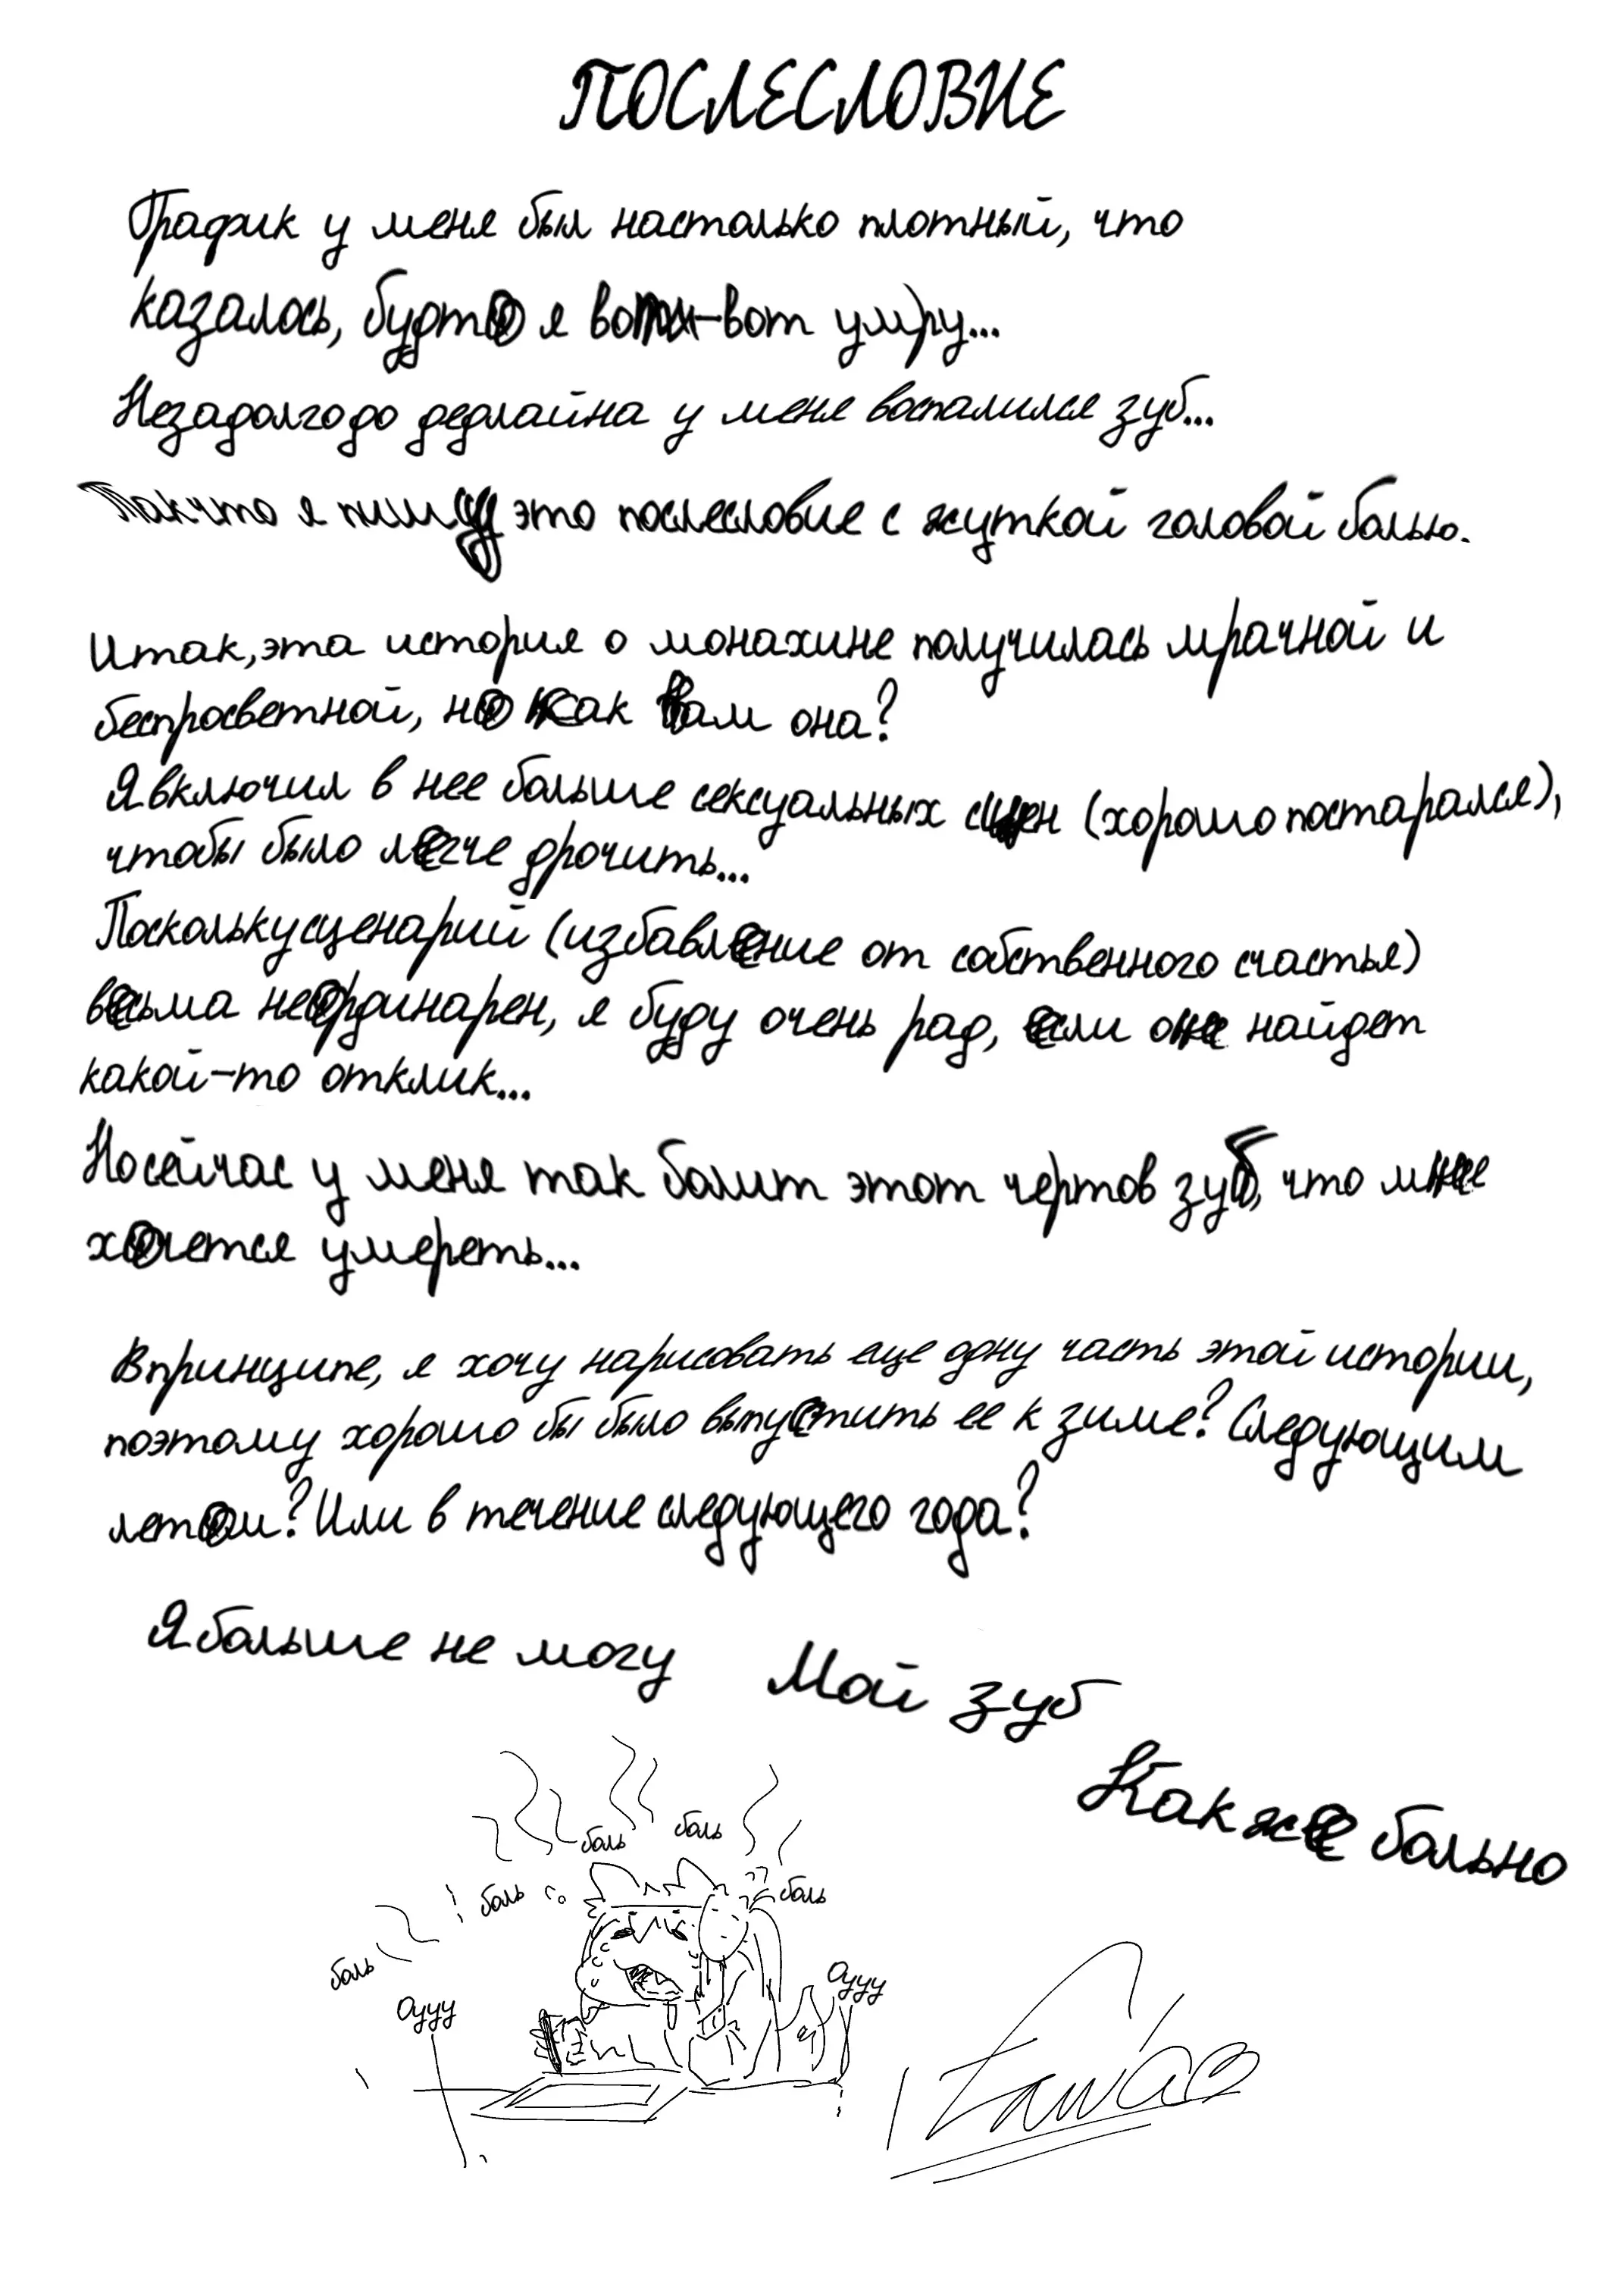 ПОСЛЕСЛОВИЕ
График у меня был настолько плотный, что
казалось, будто я вот-вот умру...
Незадолго до дедлайна у меня воспалился зуб...
Так что я пишу это послесловие с жуткой головой болью.
Итак, эта история о монахине получилась мрачной и
беспросветной, но как вам она?
Я включил в нее больше сексуальных сцен (хорошо постарался),
чтобы было легче дрочить...
Поскольку сценарий (избавление от собственного счастья)
весьма неординарен, я буду очень рад, если он найдет
какой-то отклик...
Но сейчас у меня так болит этот чертов зуб, что мне
хочется умереть...
В принципе, я хочу нарисовать еще одну часть этой истории,
поэтому хорошо бы было выпустить ее к зиме? Следующим
летом? Или в течение следующего года?
Я больше не могу
Мой зуб
Как же больно
боль
боль
боль
боль
боль
Оууу
Оууу